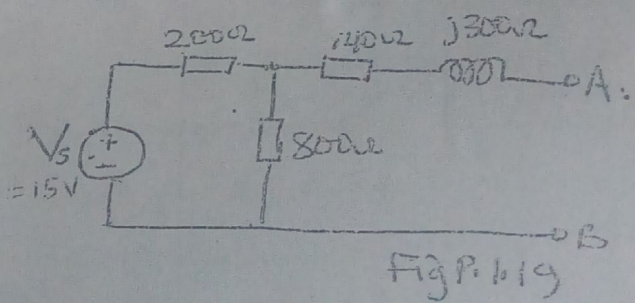 200Ω 140Ω j300Ω
A.
Vs
+
-
= 15V
800Ω
B
Fig P. 1.19